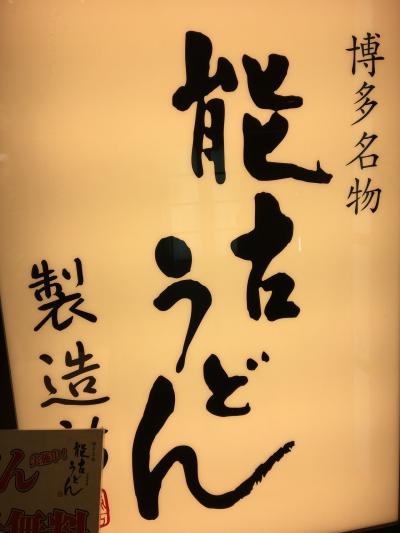 博多名物
能古うどん
製造
能古うどん
ん
無料